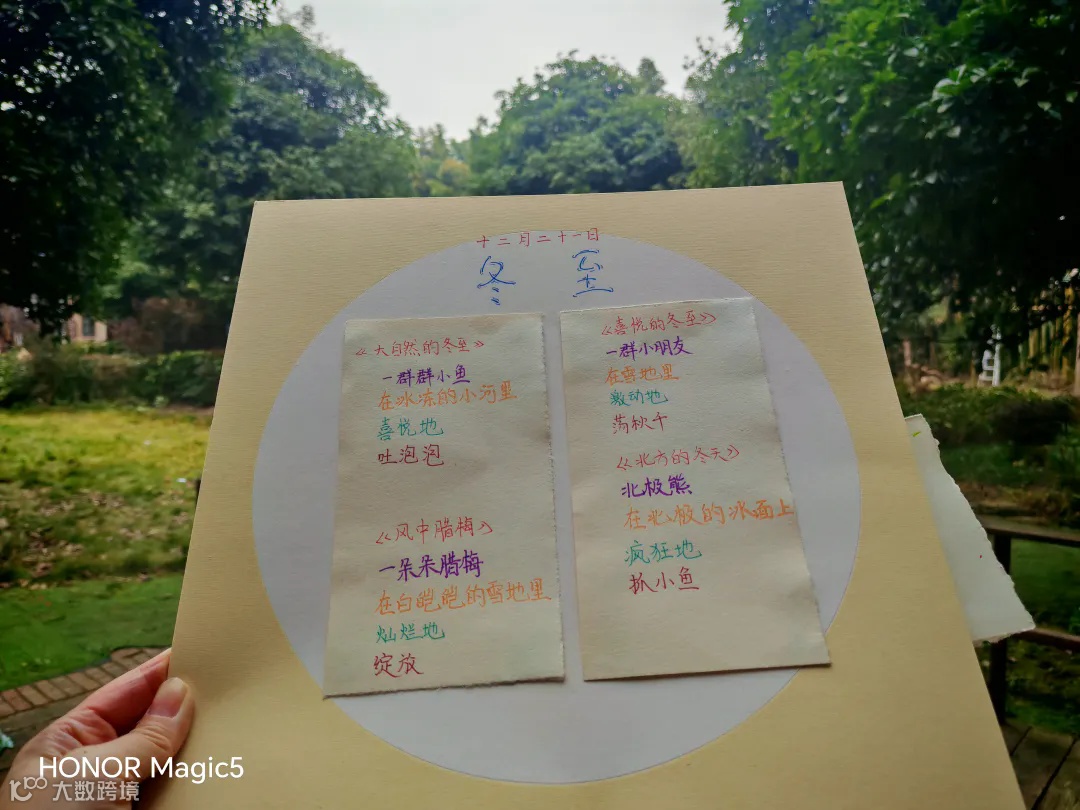 十二月二十一日
冬至
《大自然的冬至》
一群群小鱼
在冰冻的小河里
喜悦地
吐泡泡
《风中腊梅》
一朵朵腊梅
在白皑皑的雪地里
灿烂地
绽放
《喜悦的冬至》
一群小朋友
在雪地里
激动地
荡秋千
《北方的冬天》
北极熊
在北极的冰面上
疯狂地
抓小鱼
HONOR Magic5
大数跨境